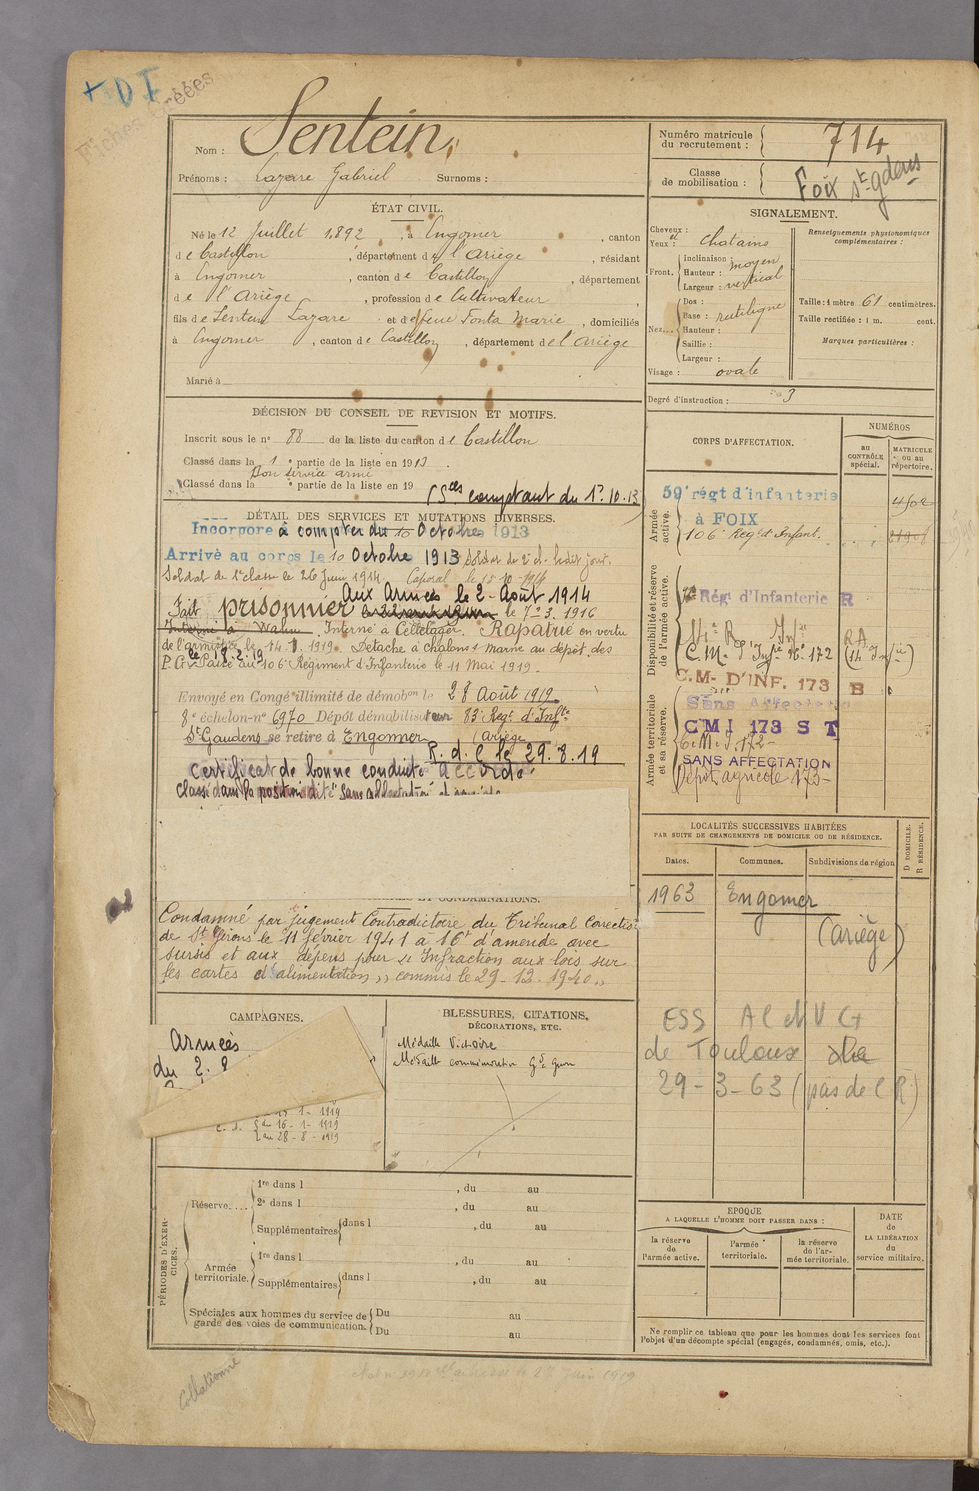 + D I
Fiches Créées
Nom : Sentein
Prénoms : Lazare Gabriel Surnoms :
Numéro matricule du recrutement : 714
Classe de mobilisation : Foix St-gdens
ÉTAT CIVIL.
Né le 12 Juillet 1892, à Engomer, canton
de Castillon, département de l'Ariège, résidant
à Engomer, canton de Castillon, département
de l'Ariège, profession de Cultivateur,
fils de Sentein Lazare et de feue Fonta Marie, domiciliés
à Engomer, canton de Castillon, département de l'Ariège
Marié à
SIGNALEMENT.
Cheveux :
et
Yeux : chatains
Front. Inclinaison : moyen
Hauteur :
Largeur : vertical
Nez... Dos :
Base : rectiligne
Hauteur :
Saillie :
Largeur :
Visage : ovale
Renseignements physionomiques
complémentaires :
Taille : 1 mètre 61 centimètres.
Taille rectifiée : 1 m. cent.
Marques particulières :
Degré d'instruction : 3
DÉCISION DU CONSEIL DE REVISION ET MOTIFS.
Inscrit sous le n° 88 de la liste du canton de Castillon
Classé dans la 1e partie de la liste en 1913.
Bon service armé
Classé dans la e partie de la liste en 19
(Sces comptant du 1er.10.13)
DÉTAIL DES SERVICES ET MUTATIONS DIVERSES.
Incorporé à compter du 10 Octobre 1913
Arrivé au corps le 10 Octobre 1913 Soldat de 2e cl. ledit jour.
Soldat de 1e classe le 26 Juin 1914 Caporal le 15-10-1914
Aux Armées le 2 Août 1914
Fait prisonnier le 7-3. 1916
Interné à Wahn. Interné à Celtelager. Rapatrié en vertu
de l'armistice le 14.1.1919. Détaché à Chalons s marne au dépôt des
le 18.2.19
P. G. Passé au 106 Régiment d'Infanterie le 11 Mai 1919.
Envoyé en Congé illimité de démobon le 28 Août 1919
8e échelon-n° 6970 Dépôt démobilisateur 83e Régt d'Inftie
St Gaudens se retire à Engomer (Ariège
R. d. C le 29.8.19
Certificat de bonne conduite accordé.
Classé dans la position dite "Sans affectation"
CORPS D'AFFECTATION.
NUMÉROS
AU CONTRÔLE spécial.
MATRICULE ou au répertoire.
Armée active.
59e régt d'infanterie
à FOIX
106e Régt d'Infant.
Disponibilité et réserve de l'armée active.
Rég. d'Infanterie R
C. M. d'Infie 16e 172
C.M- D'INF. 173 B
Armée territoriale et sa réserve.
Sans Affectation
CMI 173 S T
C. M. I. 172-
SANS AFFECTATION
Dépôt agricole 173-
LOCALITÉS SUCCESSIVES HABITÉES
PAR SUITE DE CHANGEMENTS DE DOMICILE OU DE RÉSIDENCE.
Dates.
Communes.
Subdivisions de région
D DOMICILE.
R RÉSIDENCE.
1963 Engomer
(Ariège)
ESS ACMVG
de Toulouse
29-3-63 (pas de C R)
ET CONDAMNATIONS.
Condamné par jugement Contradictoire du Tribunal Correctiel
de St Girons le 11 février 1941 à 16f d'amende avec
sursis et aux dépens pour « Infraction aux lois sur
les cartes d'alimentation » commis le 29-12-1940 »
CAMPAGNES.
Armées
du 2.8
15-1-1919
16-1-1919
28-8-1919
BLESSURES, CITATIONS,
DÉCORATIONS, ETC.
Médaille Victoire
Médaille commémorative Gde Guerre
PÉRIODES D'EXERCICES.
Réserve....
1re dans l , du au
2e dans l , du au
Supplémentaires dans l , du au
Armée territoriale.
1re dans l , du au
Supplémentaires dans l , du au
Spéciales aux hommes du service de
garde des voies de communication.
Du au
Du au
EPOQUE
A LAQUELLE L'HOMME DOIT PASSER DANS :
la réserve de l'armée active.
l'armée territoriale.
la réserve de l'armée territoriale.
DATE
de
LA LIBÉRATION
du
service militaire.
Ne remplir ce tableau que pour les hommes dont les services font
l'objet d'un décompte spécial (engagés, condamnés, omis, etc.).
Collationné